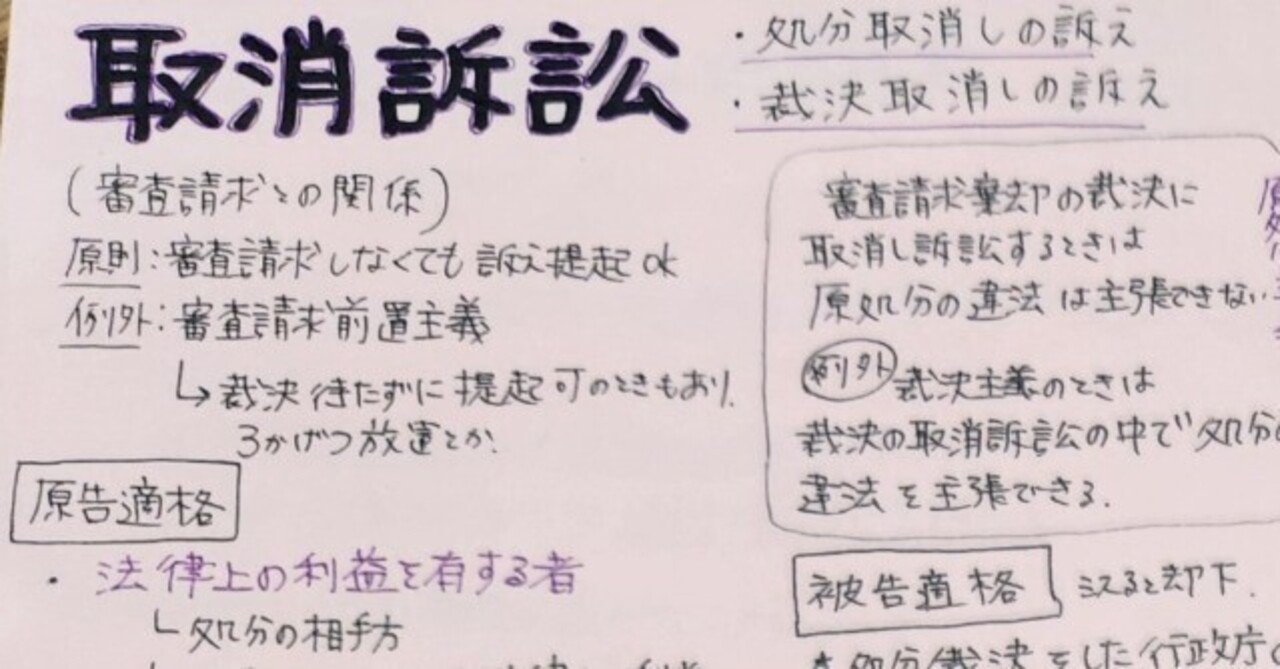 取消訴訟
・処分取消しの訴え
・裁決取消しの訴え
(審査請求との関係)
原則:審査請求しなくても訴え提起ok
例外:審査請求前置主義
↳裁決待たずに提起可のときもあり.
3かげつ放置とか.
審査請求棄却の裁決に
取消し訴訟するときは
原処分の違法は主張できない
例外 裁決主義のときは
裁決の取消訴訟の中で処分の
違法を主張できる.
原告適格
・法律上の利益を有する者
└処分の相手方
被告適格 ミスると却下.
処分裁決をした行政庁